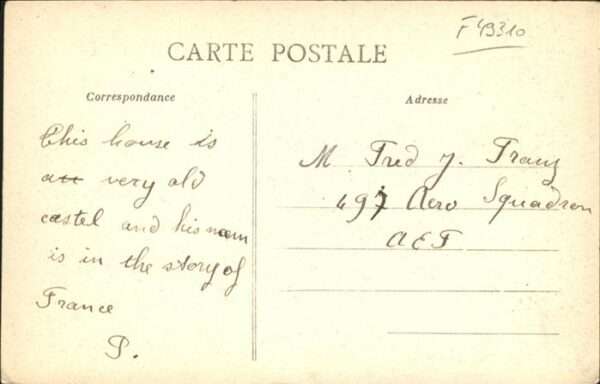 F49310
CARTE POSTALE
Correspondance
Adresse
This house is
a very old
castel and his nam
is in the story of
France
P.
M. Fred J. Franz
497 Aero Squadron
AEF